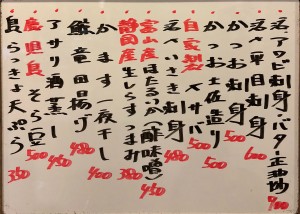 活〆アワビ刺身・バター正油焼 900
活〆平目刺身 600
かつお刺身 500
かつお土佐造り 500
自家製〆サバ 500
活〆いさき刺身 480
富山産ほたるいか(酢味噌) 450
静岡産生しらすつまみ 380
かます一夜干し 400
鯨竜田揚げ 480
アサリ酒蒸し 450
鹿児島そら豆 500
島らっきょ天ぷら 380